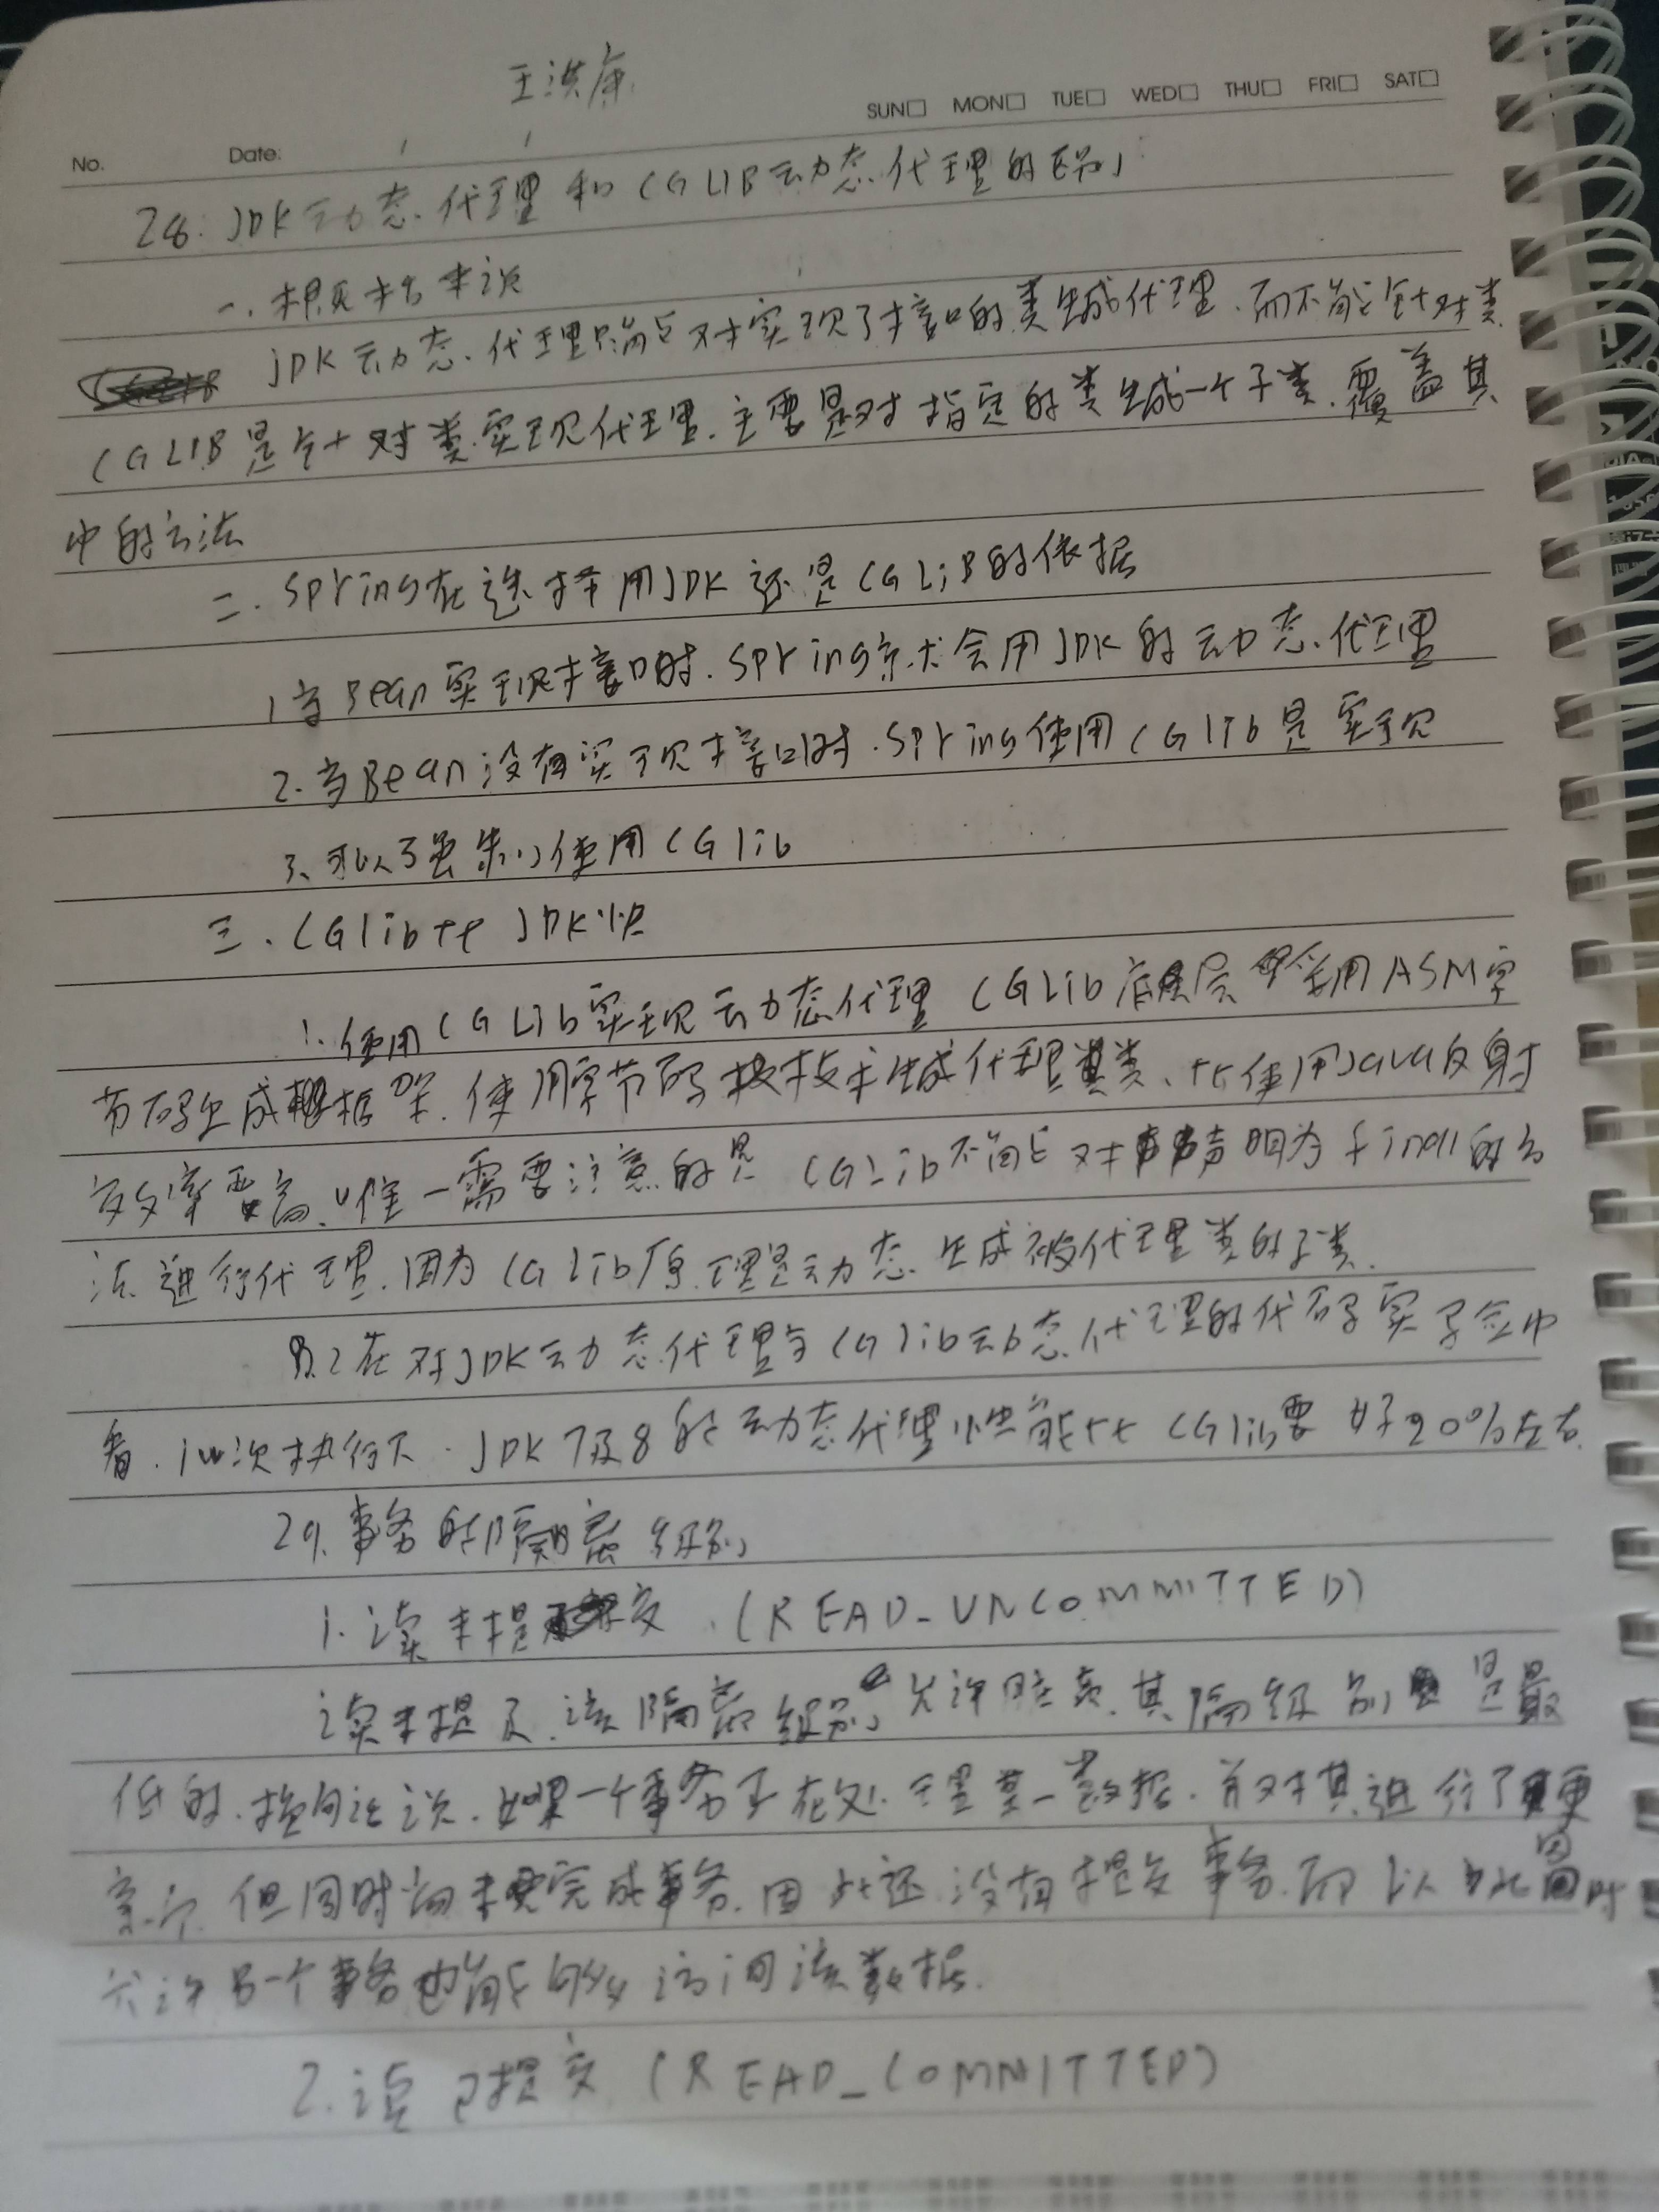 王洪康
SUN□ MON□ TUE□ WED□ THU□ FRI□ SAT□
No. Date: / /
28. JDK动态代理和CGLIB动态代理的区别
一. 概括来说
JDK动态代理只能对实现了接口的类生成代理.而不能针对类
CGLIB是针对类实现代理.主要是对指定的类生成一个子类.覆盖其
中的方法
二. Spring在选择用JDK还是CGLiB的依据
1当Bean实现接口时.Spring就会用JDK的动态代理
2.当Bean没有实现接口时.Spring使用CGlib是实现
3、可以强制使用CGlib
三. CGlib比JDK快
1.使用CGLib实现动态代理 CGLib底层采用ASM字
节码生成框架.使用字节码技术生成代理类、比使用Java反射
效率要高、唯一需要注意的是 CGLib不能对声明为final的方
法进行代理.因为CGlib原理是动态生成被代理类的子类.
2在对JDK动态代理与CGlib动态代理的代码实验中
看.1W次执行下.JDK7及8的动态代理性能比CGlib要好20%左右.
29.事务的隔离级别
1.读未提交.(READ_UNCOMMITTED)
读未提交.该隔离级别允许脏读.其隔级别是最
低的.换句话说.如果一个事务正在处理某一数据.并对其进行了更
新.但同时尚未完成事务.因此还没有提交事务.而以此同时
允许另一个事务也能够访问该数据.
2.读已提交(READ_COMMITTED)